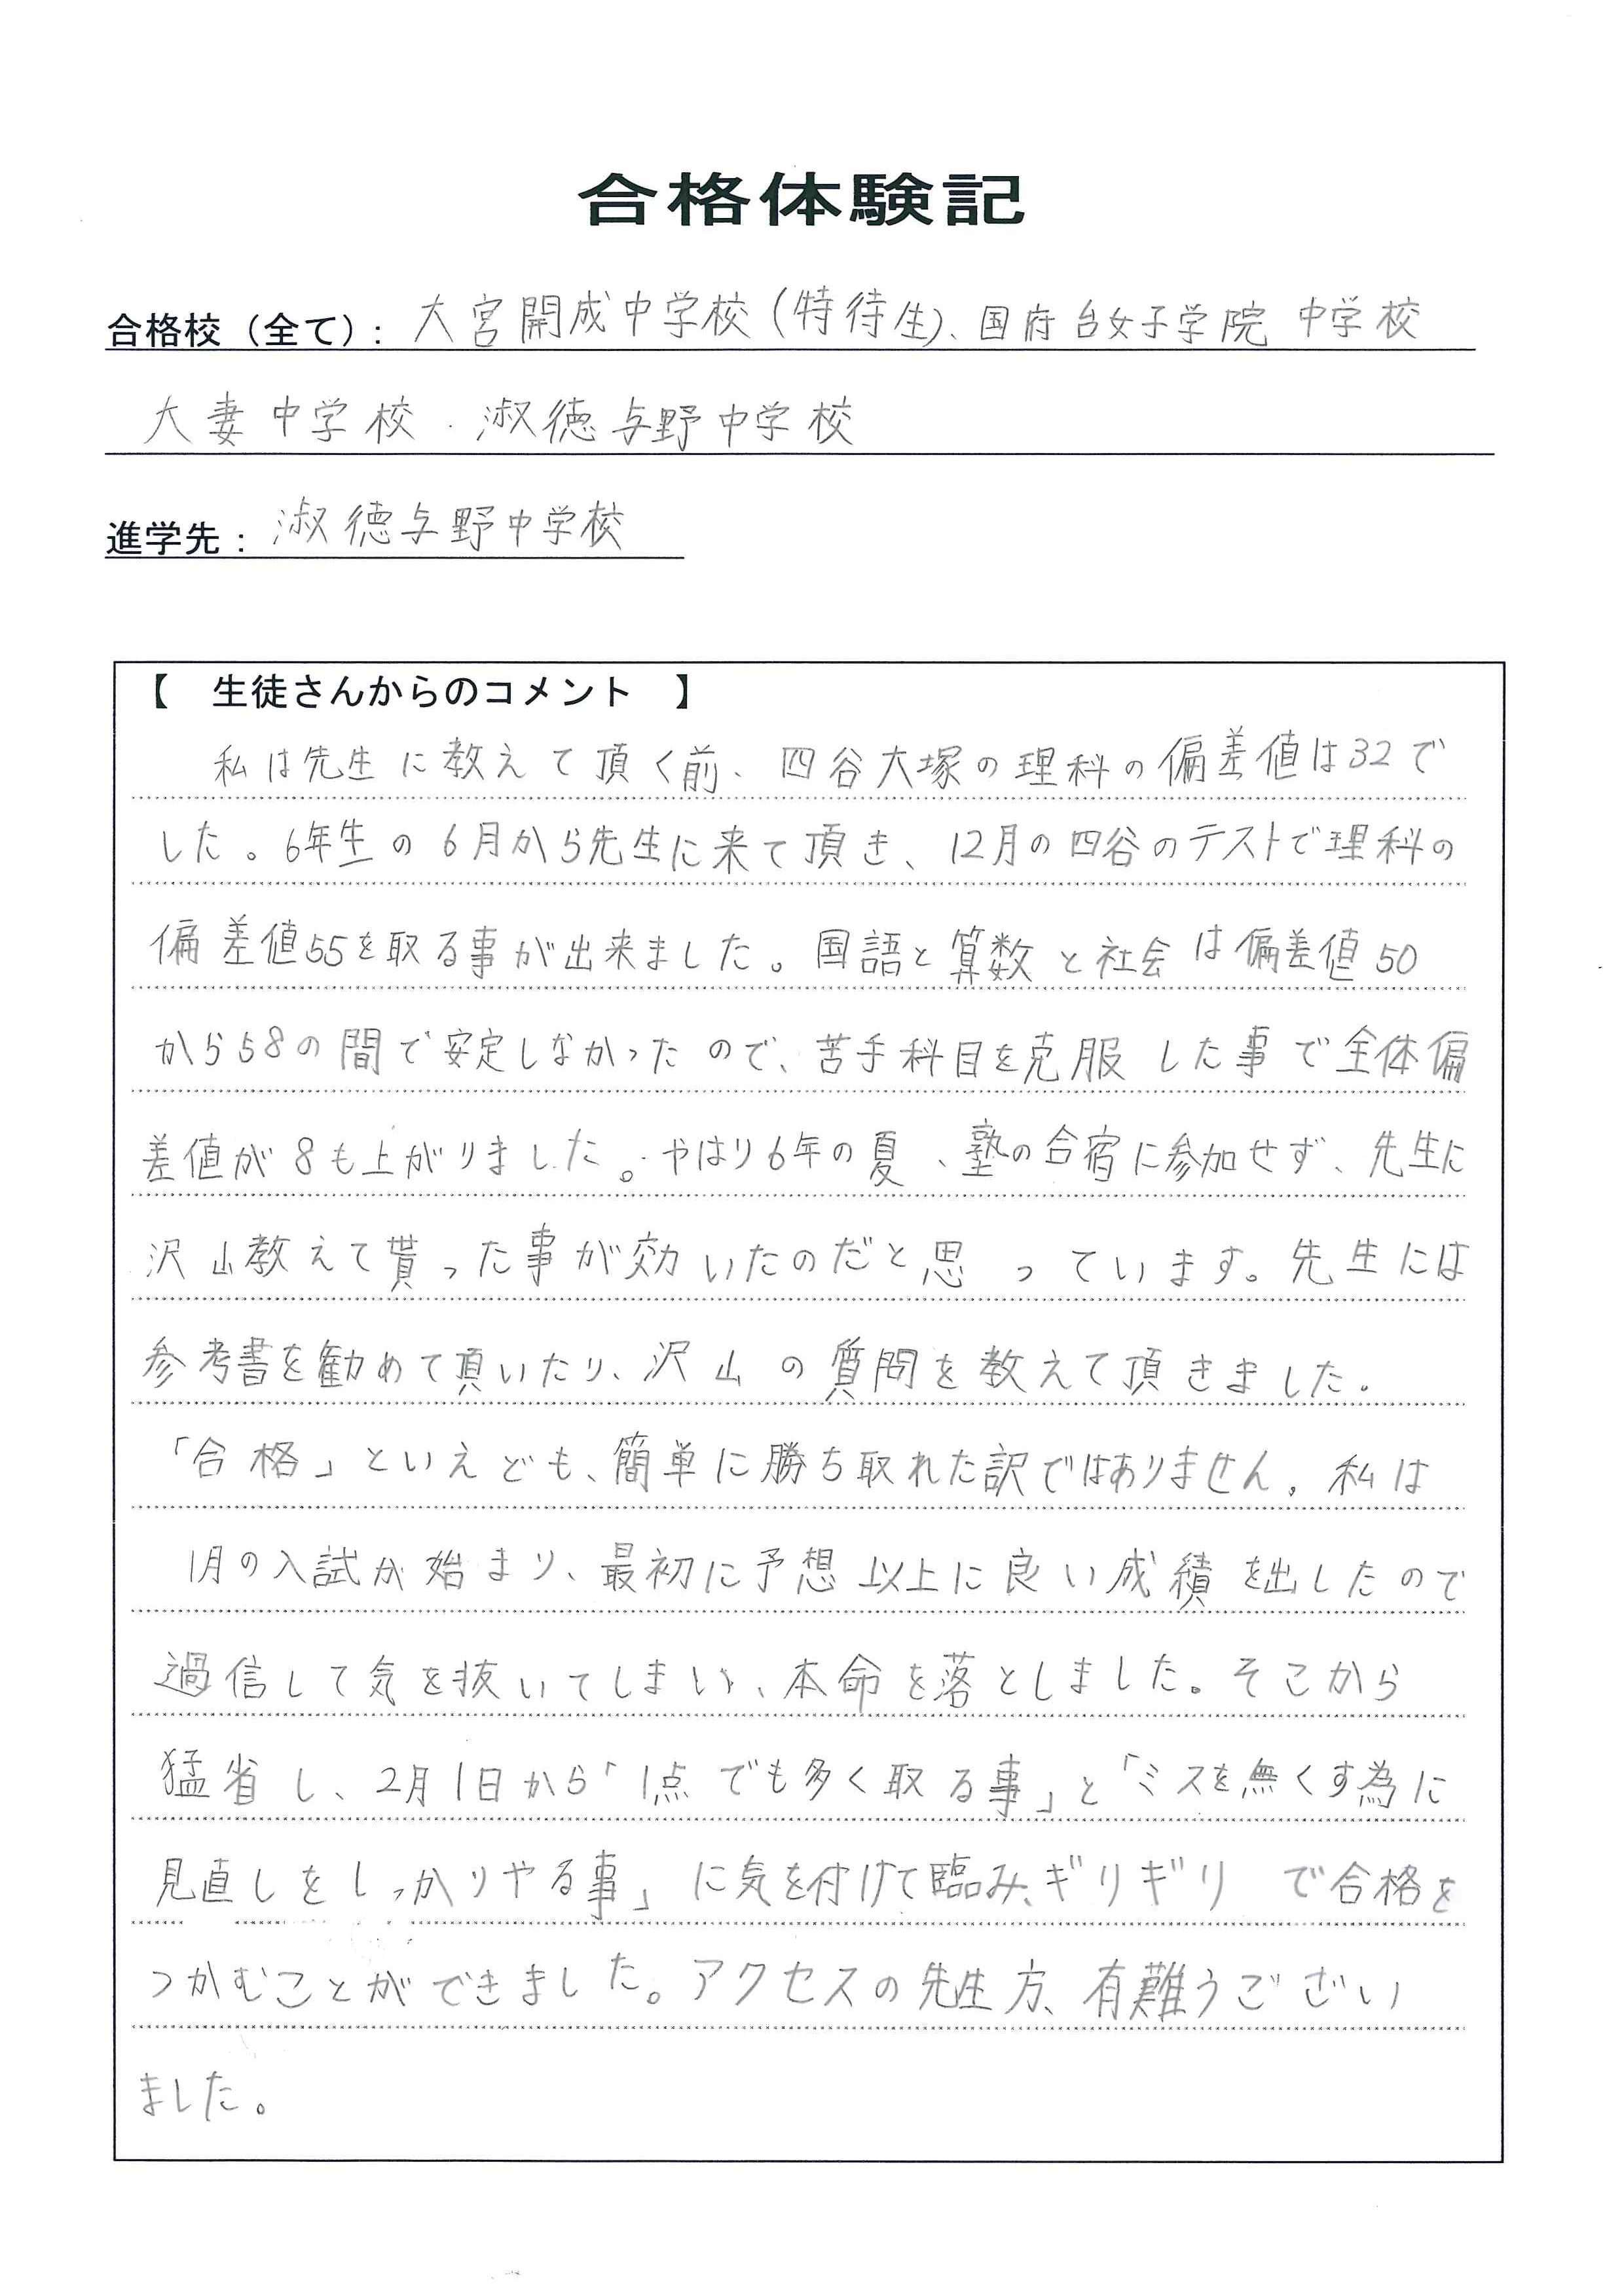 合格体験記
合格校（全て）: 大宮開成中学校(特待生)、国府台女子学院 中学校
大妻中学校 . 淑徳与野中学校
進学先 : 淑徳与野中学校
【 生徒さんからのコメント 】
私は先生に教えて頂く前、四谷大塚の理科の偏差値は32で
した。6年生の6月から先生に来て頂き、12月の四谷のテストで理科の
偏差値55を取る事が出来ました。国語と算数と社会は偏差値50
から58の間で安定しなかったので、苦手科目を克服した事で全体偏
差値が8も上がりました。やはり6年の夏、塾の合宿に参加せず、先生に
沢山教えて貰った事が効いたのだと思っています。先生には
参考書を勧めて頂いたり、沢山の質問を教えて頂きました。
「合格」といえども、簡単に勝ち取れた訳ではありません。私は
1月の入試が始まり、最初に予想以上に良い成績を出したので
過信して気を抜いてしまい、本命を落としました。そこから
猛省し、2月1日から「1点でも多く取る事」と「ミスを無くす為に
見直しをしっかりやる事」に気を付けて臨み、ギリギリで合格を
つかむことができました。アクセスの先生方、有難うござい
ました。